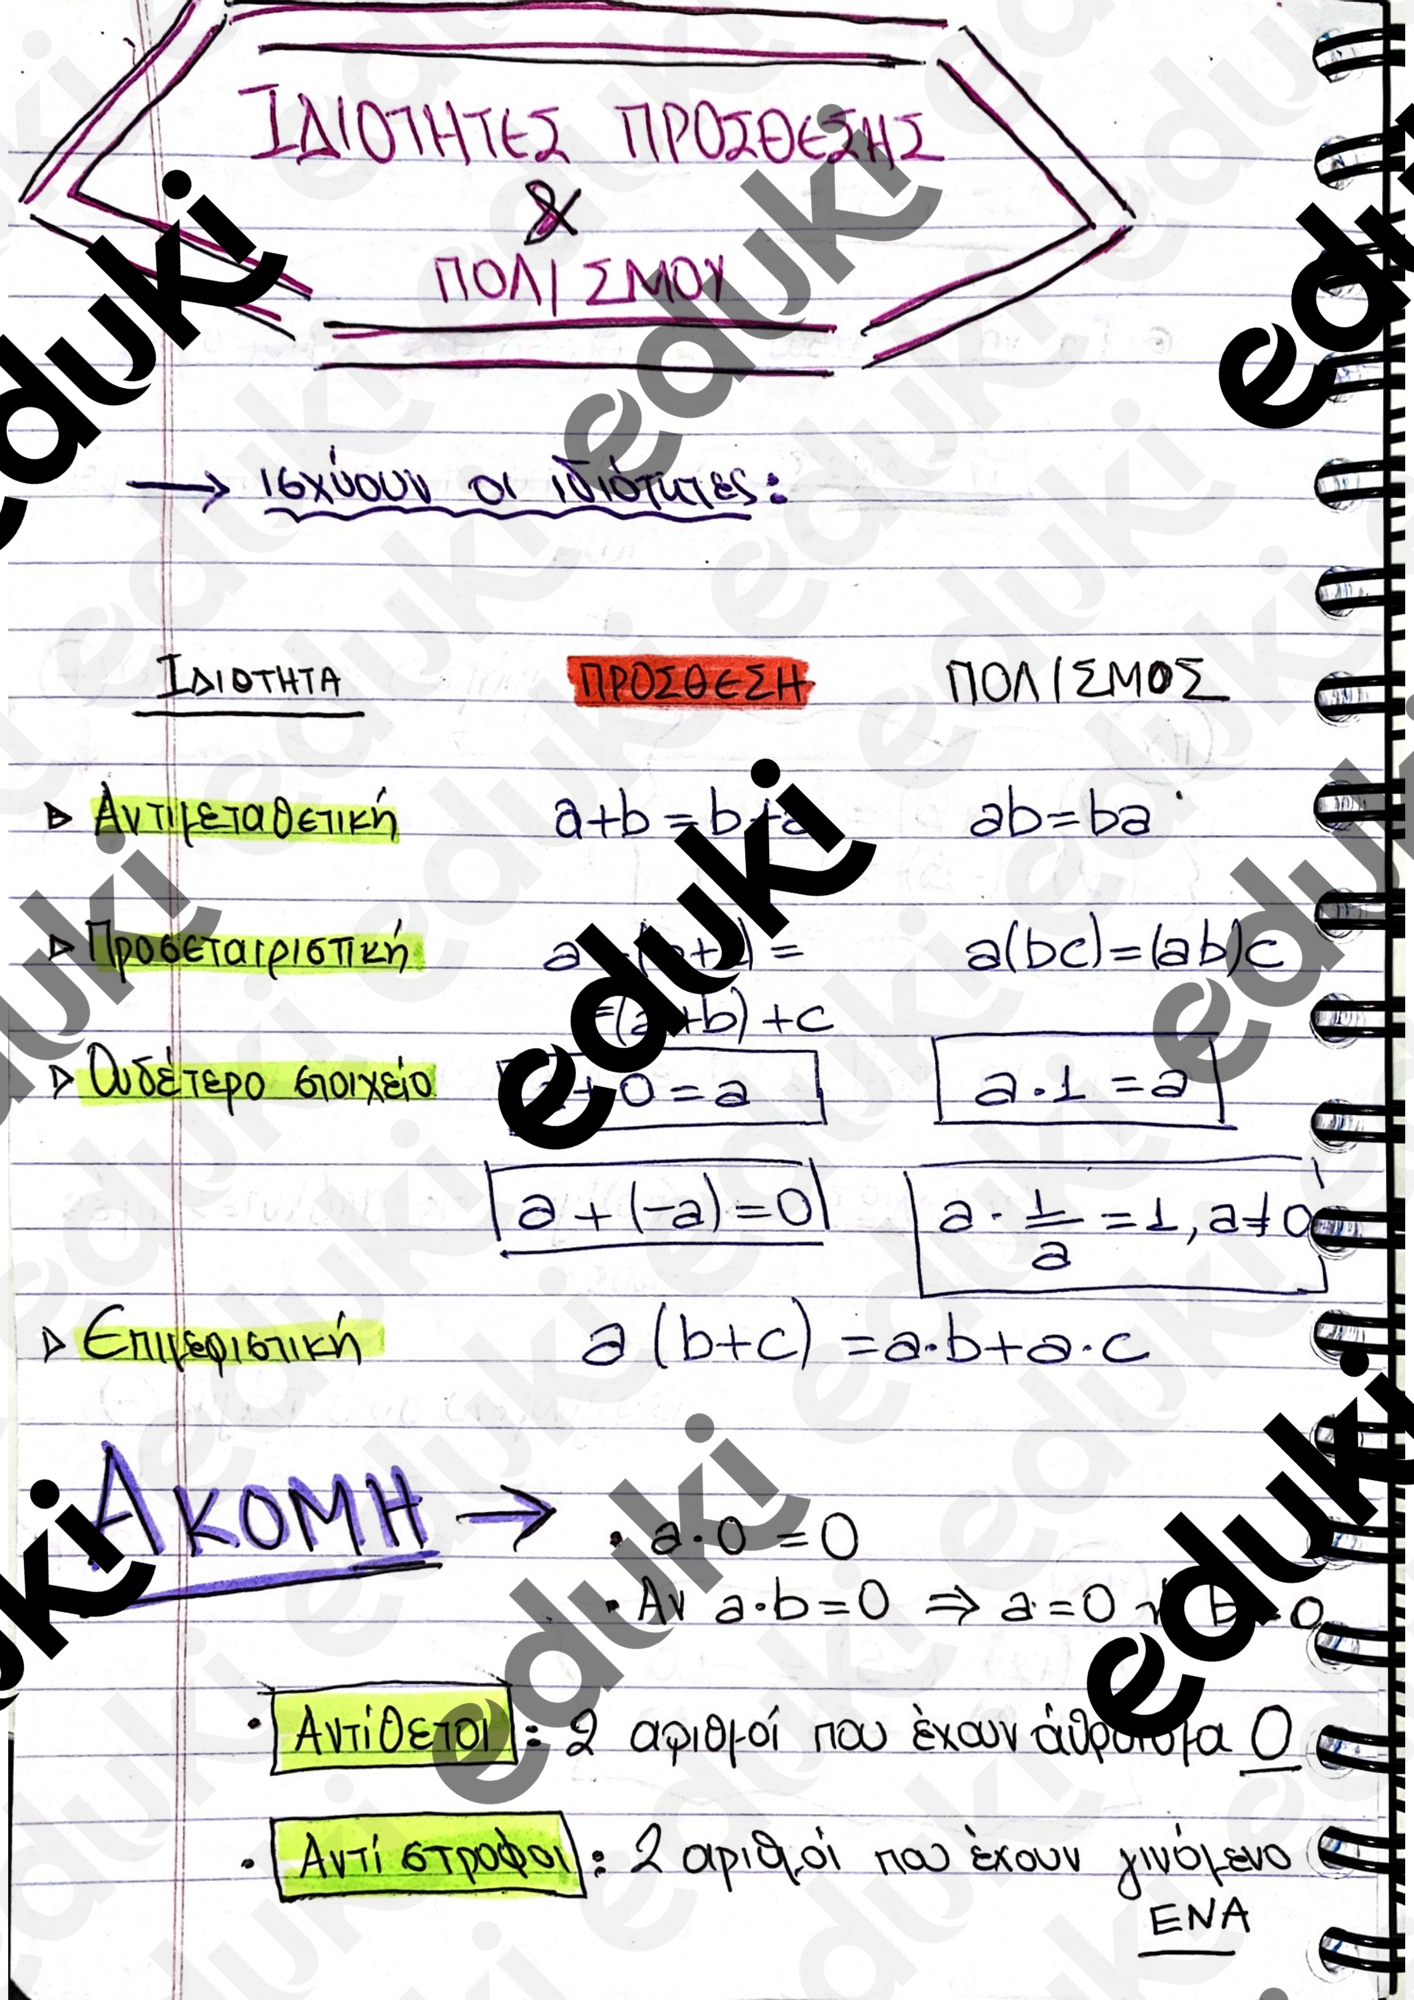 ΙΔΙΟΤΗΤΕΣ ΠΡΟΣΘΕΣΗΣ
&
ΠΟΛ/ΣΜΟΥ
→ ισχύουν οι ιδιότητες:
ΙΔΙΟΤΗΤΑ ΠΡΟΣΘΕΣΗ ΠΟΛ/ΣΜΟΣ
▷ Αντιμεταθετική a+b=b+a ab=ba
▷ Προσεταιριστική a+(b+c)= a(bc)=(ab)c
=(a+b)+c
▷ Ουδέτερο στοιχείο a+0=a a·1=a
a+(-a)=0 a·1/a=1, a≠0
▷ Επιμεριστική a(b+c)=a·b+a·c
ΑΚΟΜΗ → • a·0=0
• Αν a·b=0 ⇒ a=0 ή b=0
• Αντίθετοι: 2 αριθμοί που έχουν άθροισμα 0
• Αντίστροφοι: 2 αριθμοί που έχουν γινόμενο
ΕΝΑ
eduki
eduki
eduki
eduki
eduki
eduki
eduki
eduki
eduki